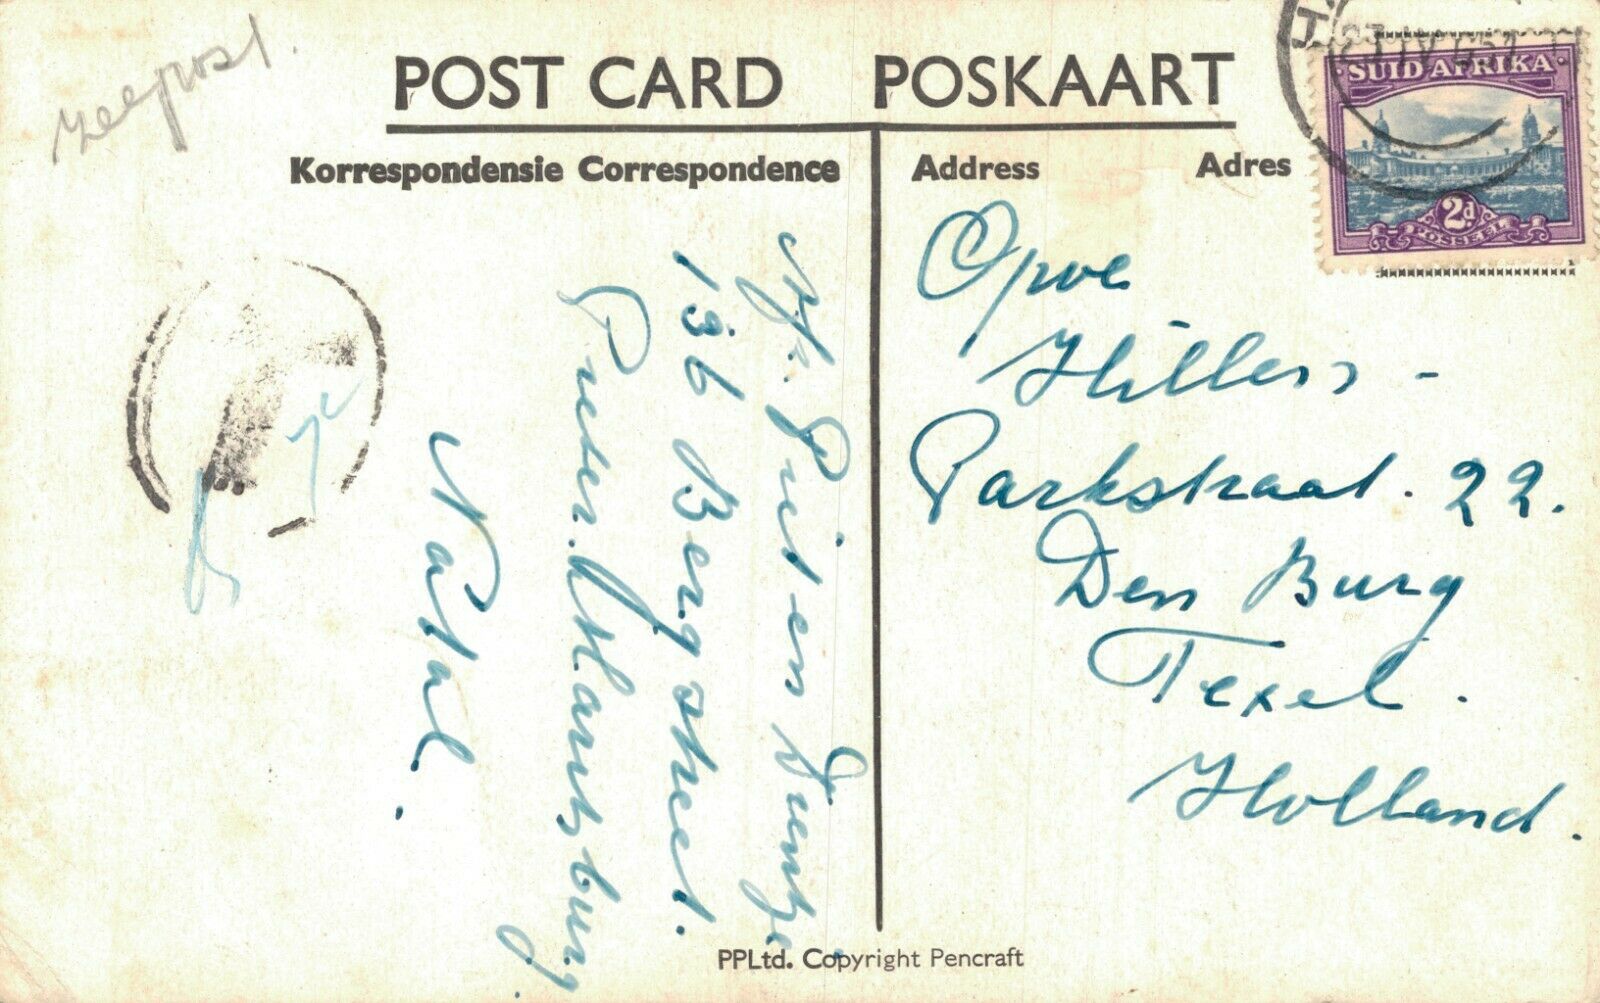 zeepost.
POST CARD POSKAART
Korrespondensie Correspondence
Address Adres
SUID AFRIKA
2d
POSSEEL
Opoe
Hillers -
Parkstraat. 22.
Den Burg
Texel.
Holland.
Piet en
136 Bergstreet.
Pieter. Maritsburg.
Natal.
PPLtd. Copyright Pencraft